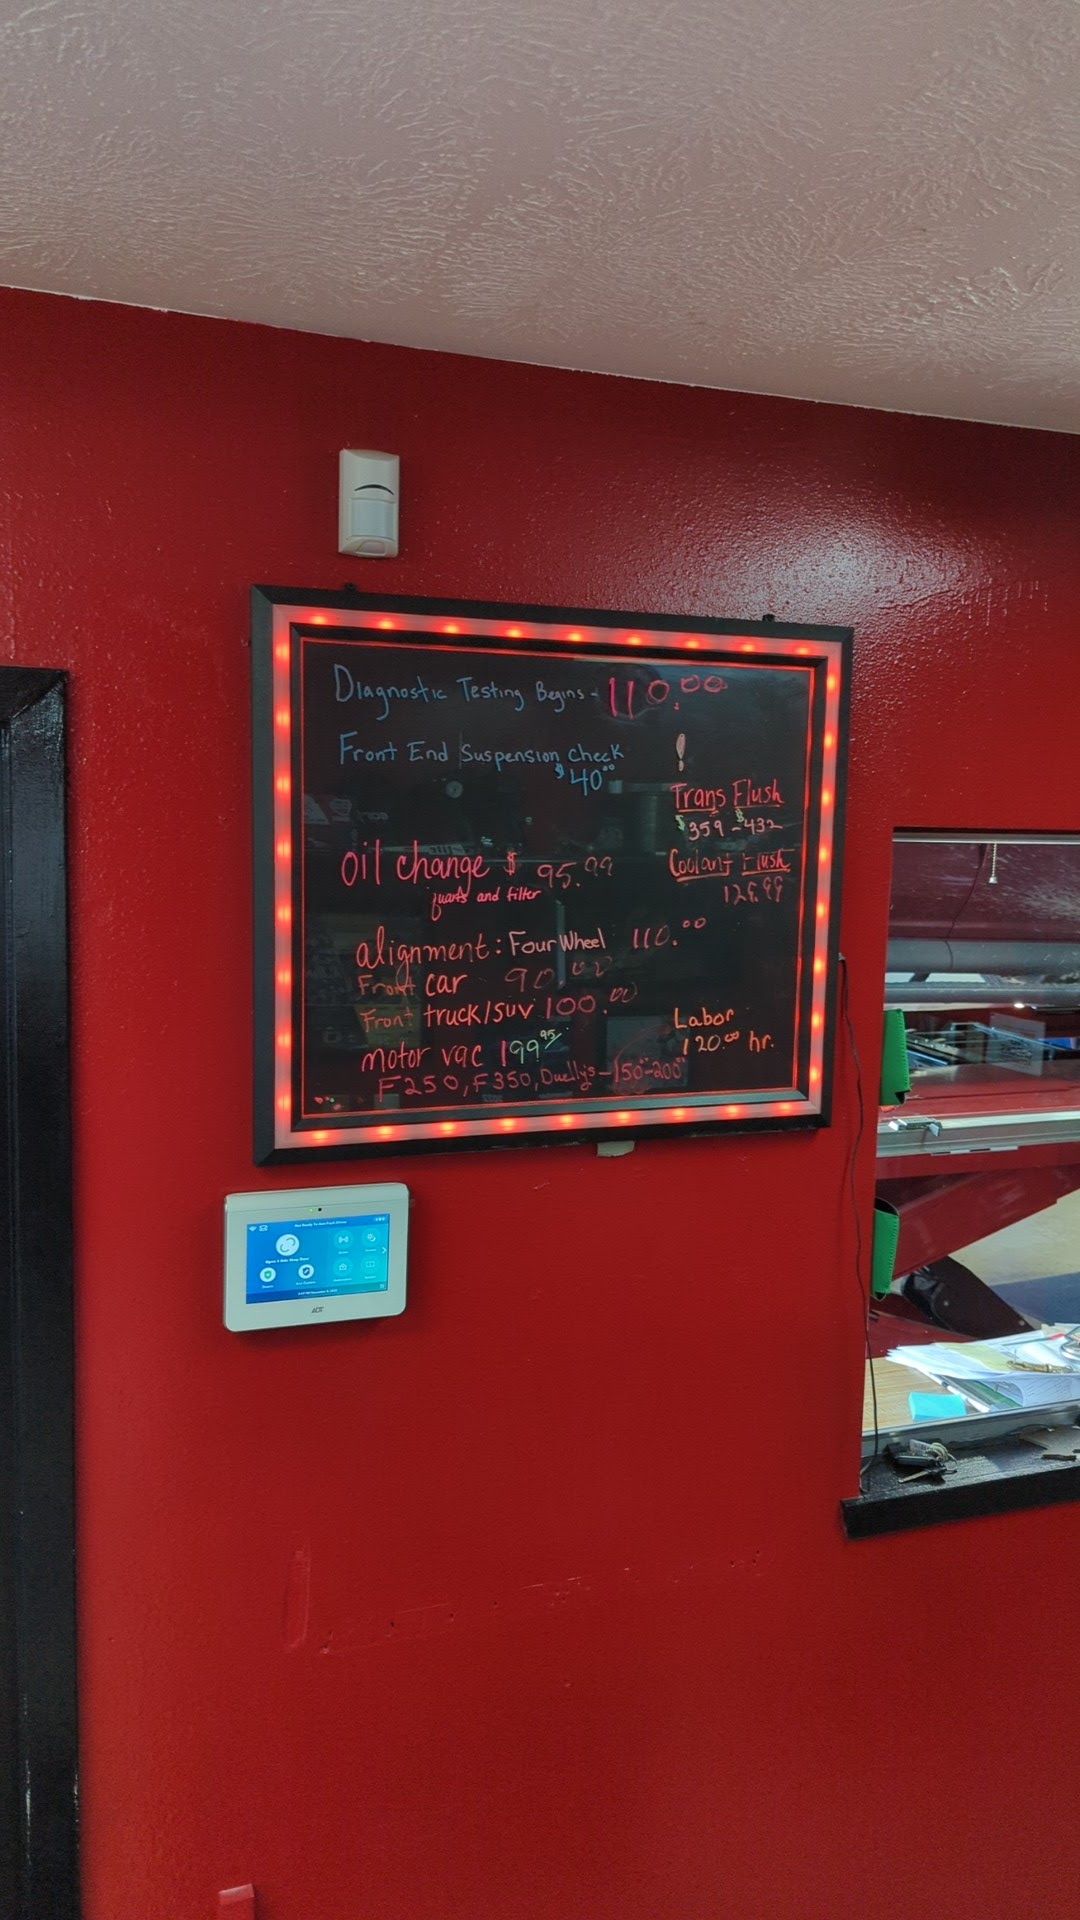 Diagnostic Testing Begins - 110.00
Front End Suspension Check
$40.00
!
Trans Flush
$359 - $432
Coolant Flush
129.99
oil change $ 95.99
quarts and filter
alignment: Four Wheel 110.00
Front car 90.00
Front truck/suv 100.00
motor vac 199.95
F250, F350, Duelly's - 150.00-200.00
Labor
120.00 hr.
ADT